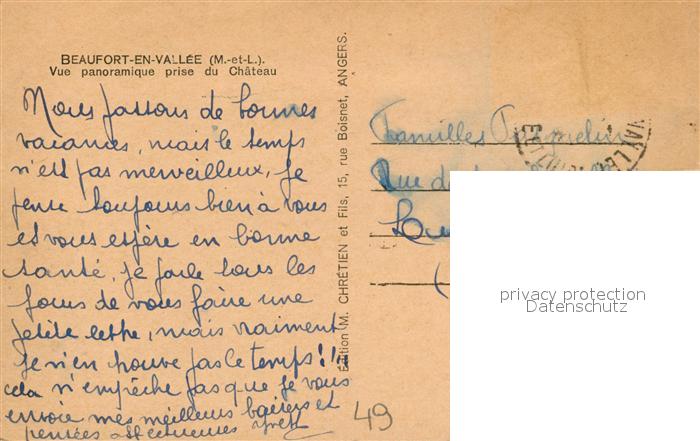 BEAUFORT-EN-VALLÉE (M.-et-L.).
Vue panoramique prise du Château
Nous passons de bonnes
vacances, mais le temps
n'est pas merveilleux, je
pense toujours bien à vous
et vous espère en bonne
santé, je parle tous les
jours de vous faire une
petite lettre, mais vraiment
je n'en trouve pas le temps!!!
cela n'empêche pas que je vous
envoie mes meilleurs baisers et
pensées affectueuses
Édition M. CHRÉTIEN et Fils, 15, rue Boisnet, ANGERS.
Familles
Rue de
49
privacy protection
Datenschutz